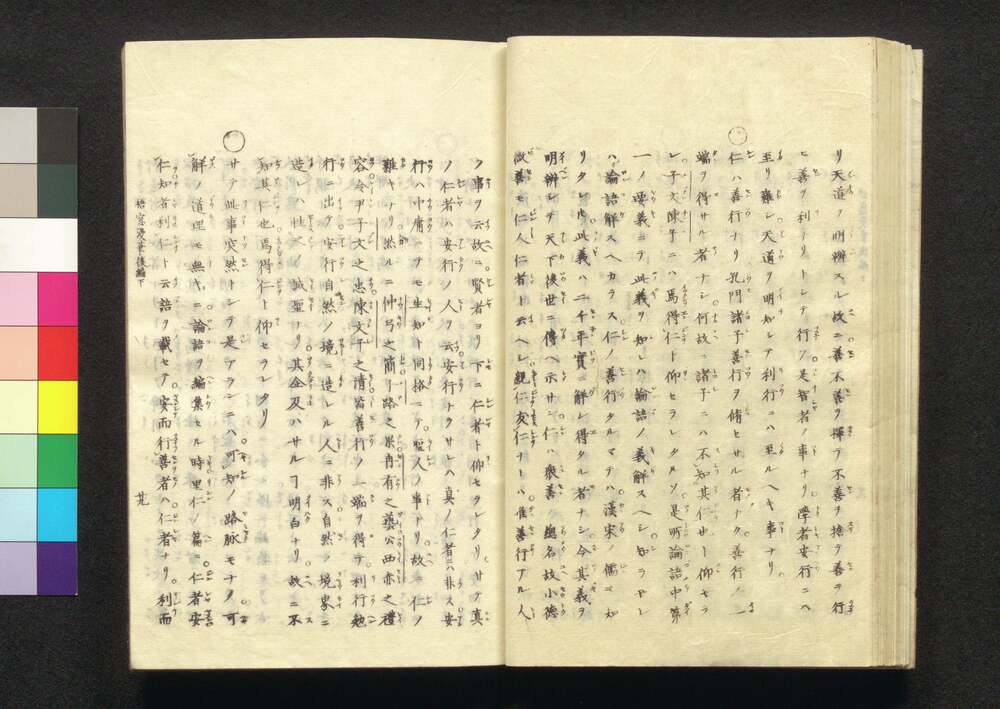 リ天道ヲ明辨スルカ故ニ善不善ヲ擇ヲ不善ヲ捨ヲ善ヲ行
ヒ善ヲ利ヲリトシテ行フ是智者ノ事ナリ學者安行ニハ
至リ難レ天道ヲ明知シテ利行ニハ至ルヘキ事ナリ
仁ハ善行ナリ孔門諸子善行ヲ脩ヒサル者ナク善行ノ一
端ヲ得サル者ナシ何故ニ諸子ニハ不知其仁也ト仰セラ
レ子文陳子ニハ焉得仁ト仰ヒラレタルソ是所論語中第
一ノ要義ニヲ此義ヲ知レハ論語ノ義解スヘシ知ラサレ
ハ論語解スヘカラス仁ノ善行タルマテハ漢宋ノ儒ニ知
リタレ此義ハ二千年實ニ解レ得タル者ナシ今其義ヲ
明辨シテ天下後世ニ傳ヘ示サン仁ハ衆善ノ總名故小德
微善モ仁人仁者ト云ヘレ親仁友仁ナトハ唯善行アル人
ク事ヲ云故ニ賢者ヨリ下ニ仁者ト仰セタレタリサテ真
ノ仁者ハ安行ノ人ヲ云安行トクサレハ真ノ仁者ニハ非ス安
行ハ中庸ニテモ生知ト同格ニテ聖人ノ事ナリ故ニ仁ノ
難キナリ然ルニ仲弓之簡子路之果冉有之藝公西赤之禮
容令尹子文之忠陳文子之清皆善行ノ一端ヲ得テ利行勉
行ニ出ヲ安行自然ノ境ニ造レル人ニ非ス自然ノ境界ニ
造レハ性ノ誠聖ナリ其企及ハサルヿ明白ナリ故ニ不
知其仁也焉得仁ト仰セラレタリ
サテ此事突然トシテ是アランニハ可知ノ路脉モナク可
解ノ道理モ無レ𪜈論語ヲ編集セル時里仁ノ篇ニ仁者安
仁知者利仁ト云語ヲ載セテ安而行善者ハ仁者ナリ利而
梧窓漫筆後編下